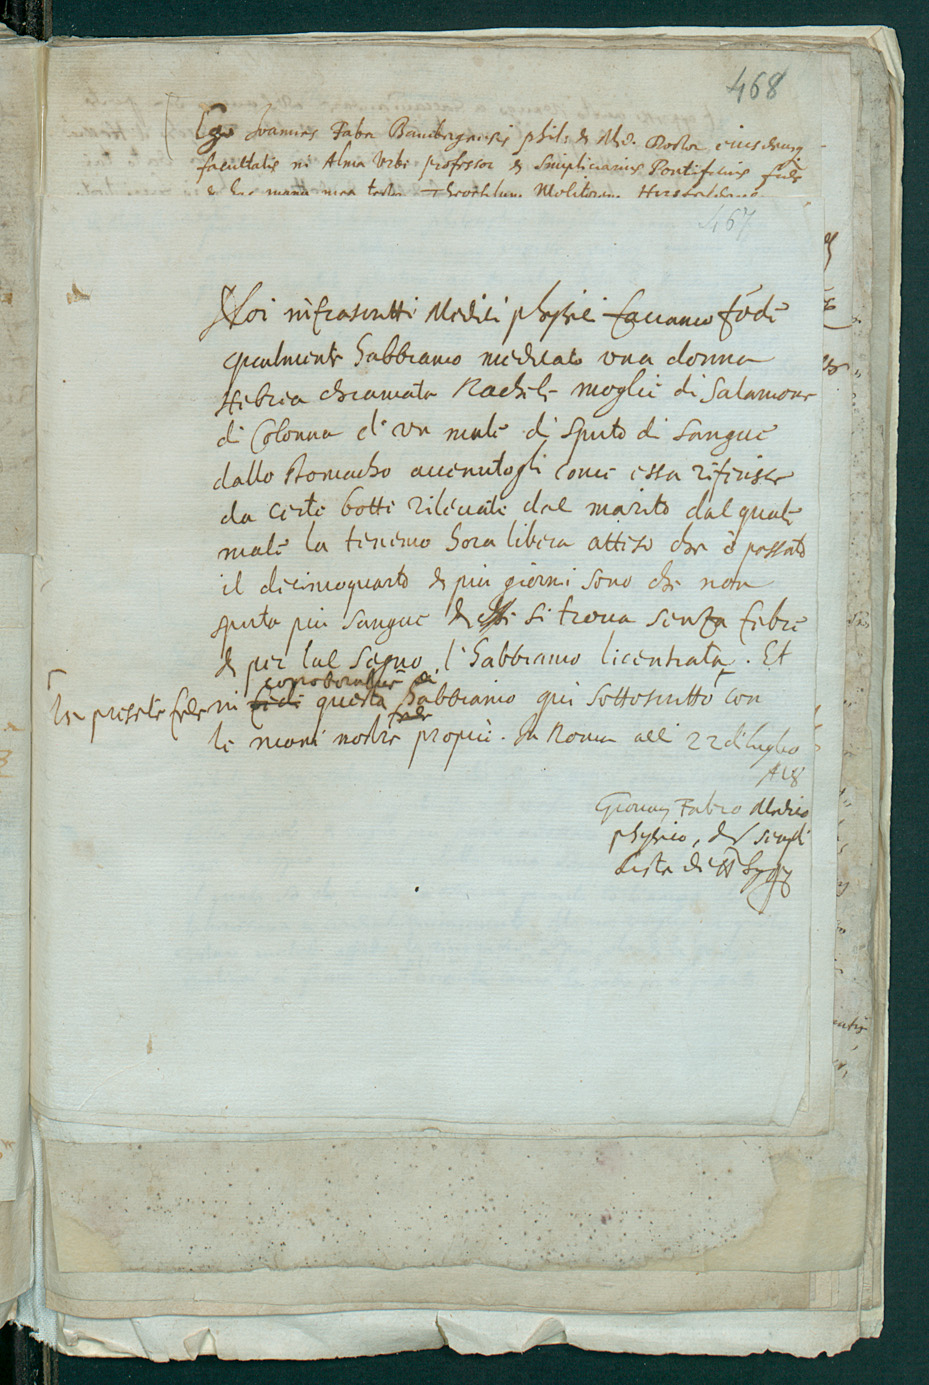 468
Ego Ioannes Faber Bambergensis phil: & Med. Doctor eiusdemq
facultatis in Alma Urbe professor & Simpliciarius Pontificius fidē
& hac manu mea testor Theophilum Molitorem
467
Noi infrascritti Medici physici facciamo fede
qualmente habbiamo medicato una donna
Hebrea chiamata Rachele moglie di Salamone
di Colonna d'un male di sputo di sangue
dallo stomacho avenutogli come essa riferisce
da certe botte rilevate dal marito dal quale
male la tenemo hora libera atteso che è passato
il decimoquarto & piu giorni sono che non
sputa piu sangue & si trova senza febre
& per tal segno l'habbiamo licentiata. Et
corroboratione di
in fede questa habbiamo qui sottoscritto con
la presēte fede
fede
le mani nostre proprie. In Roma alli 22 di luglio
1618
Giovan Fabro Medico
physico, & sempli
cista di N Sigre